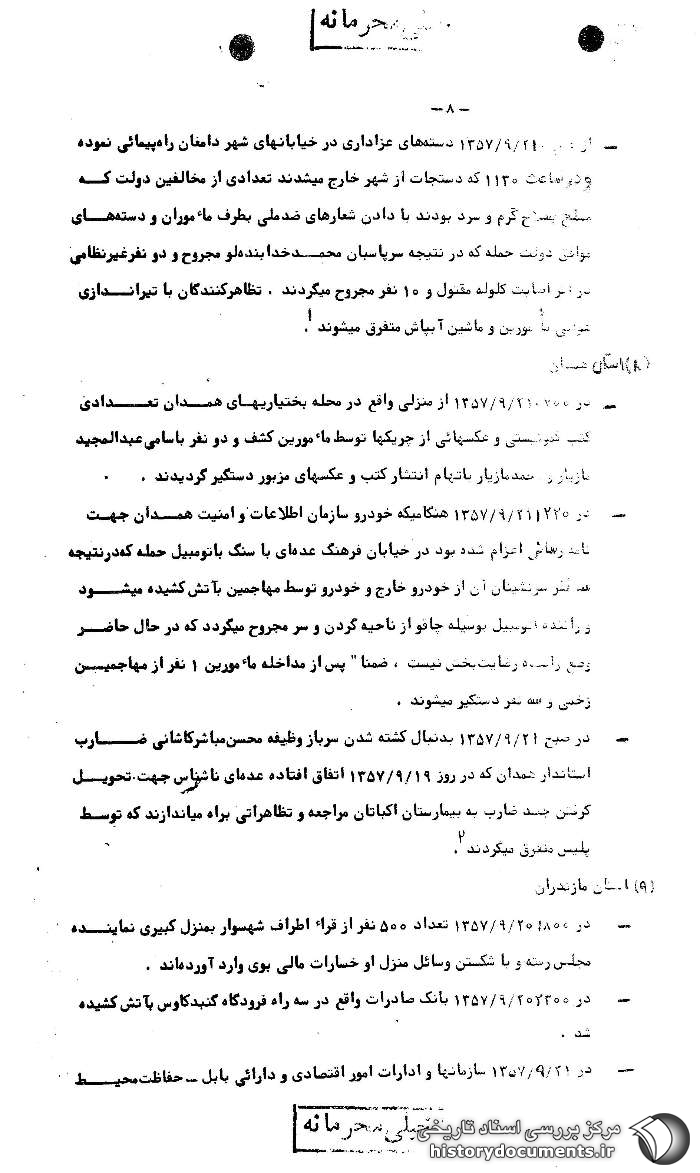 خیلی محرمانه
- ۸ -
ـ از ۱۳۵۷/۹/۲۱ دسته‌های عزاداری در خیابانهای شهر دامغان راه‌پیمائی نموده
و در ساعت ۱۱۳۰ که دستجات از شهر خارج میشدند تعدادی از مخالفین دولت که
مسلح بسلاح گرم و سرد بودند با دادن شعارهای ضدملی بطرف مأموران و دسته‌های
موافق دولت حمله که در نتیجه سرپاسبان محمدخدابنده‌لو مجروح و دو نفر غیرنظامی
در اثر اصابت گلوله مقتول و ۱۰ نفر مجروح میگردند . تظاهرکنندگان با تیراندازی
هوائی مأمورین و ماشین آبپاش متفرق میشوند ۱.
(۸) استان همدان
ـ در ۱۳۵۷/۹/۲۱ از منزلی واقع در محله بختیاریهای همدان تعدادی
کتب کمونیستی و عکسهائی از چریکها توسط مأمورین کشف و دو نفر باسامی عبدالمجید
مازیار و مازیار باتهام انتشار کتب و عکسهای مزبور دستگیر گردیدند .
ـ در ۱۳۵۷/۹/۲۱ هنگامیکه خودرو سازمان اطلاعات و امنیت همدان جهت
نامه رسانی اعزام شده بود در خیابان فرهنگ عده‌ای با سنگ باتومبیل حمله که درنتیجه
سه نفر سرنشینان آن از خودرو خارج و خودرو توسط مهاجمین بآتش کشیده میشود
و راننده اتومبیل بوسیله چاقو از ناحیه گردن و سر مجروح میگردد که در حال حاضر
وضع راننده رضایت‌بخش نیست ، ضمنا" پس از مداخله مأمورین ۱ نفر از مهاجمین
زخمی و سه نفر دستگیر میشوند .
ـ در صبح ۱۳۵۷/۹/۲۱ بدنبال کشته شدن سرباز وظیفه محسن مباشرکاشانی ضارب
استاندار همدان که در روز ۱۳۵۷/۹/۱۹ اتفاق افتاده عده‌ای ناشناس جهت تحویل
گرفتن جسد ضارب به بیمارستان اکباتان مراجعه و تظاهراتی براه میاندازند که توسط
پلیس متفرق میگردند ۲.
(۹) استان مازندران
ـ در ۱۳۵۷/۹/۲۰۱۸۰۰ تعداد ۵۰۰ نفر از قراء اطراف شهسوار بمنزل کبیری نماینده
مجلس رفته و با شکستن وسائل منزل او خسارات مالی بوی وارد آورده‌اند .
ـ در ۱۳۵۷/۹/۲۰۲۳۰۰ بانک صادرات واقع در سه راه فرودگاه گنبدکاوس بآتش کشیده
شد .
ـ در ۱۳۵۷/۹/۲۱ سازمانها و ادارات امور اقتصادی و دارائی بابل ـ حفاظت محیط
خیلی محرمانه
مرکز بررسی اسناد تاریخی
historydocuments.ir